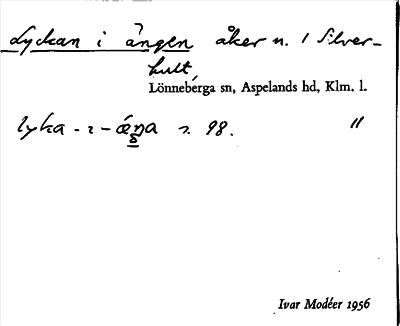 Lyckan i ängen åker n. 1 Silver-
hult,
Lönneberga sn, Aspelands hd, Klm. l.
lyka - ɪ - æŋa s. 98. "
Ivar Modéer 1956